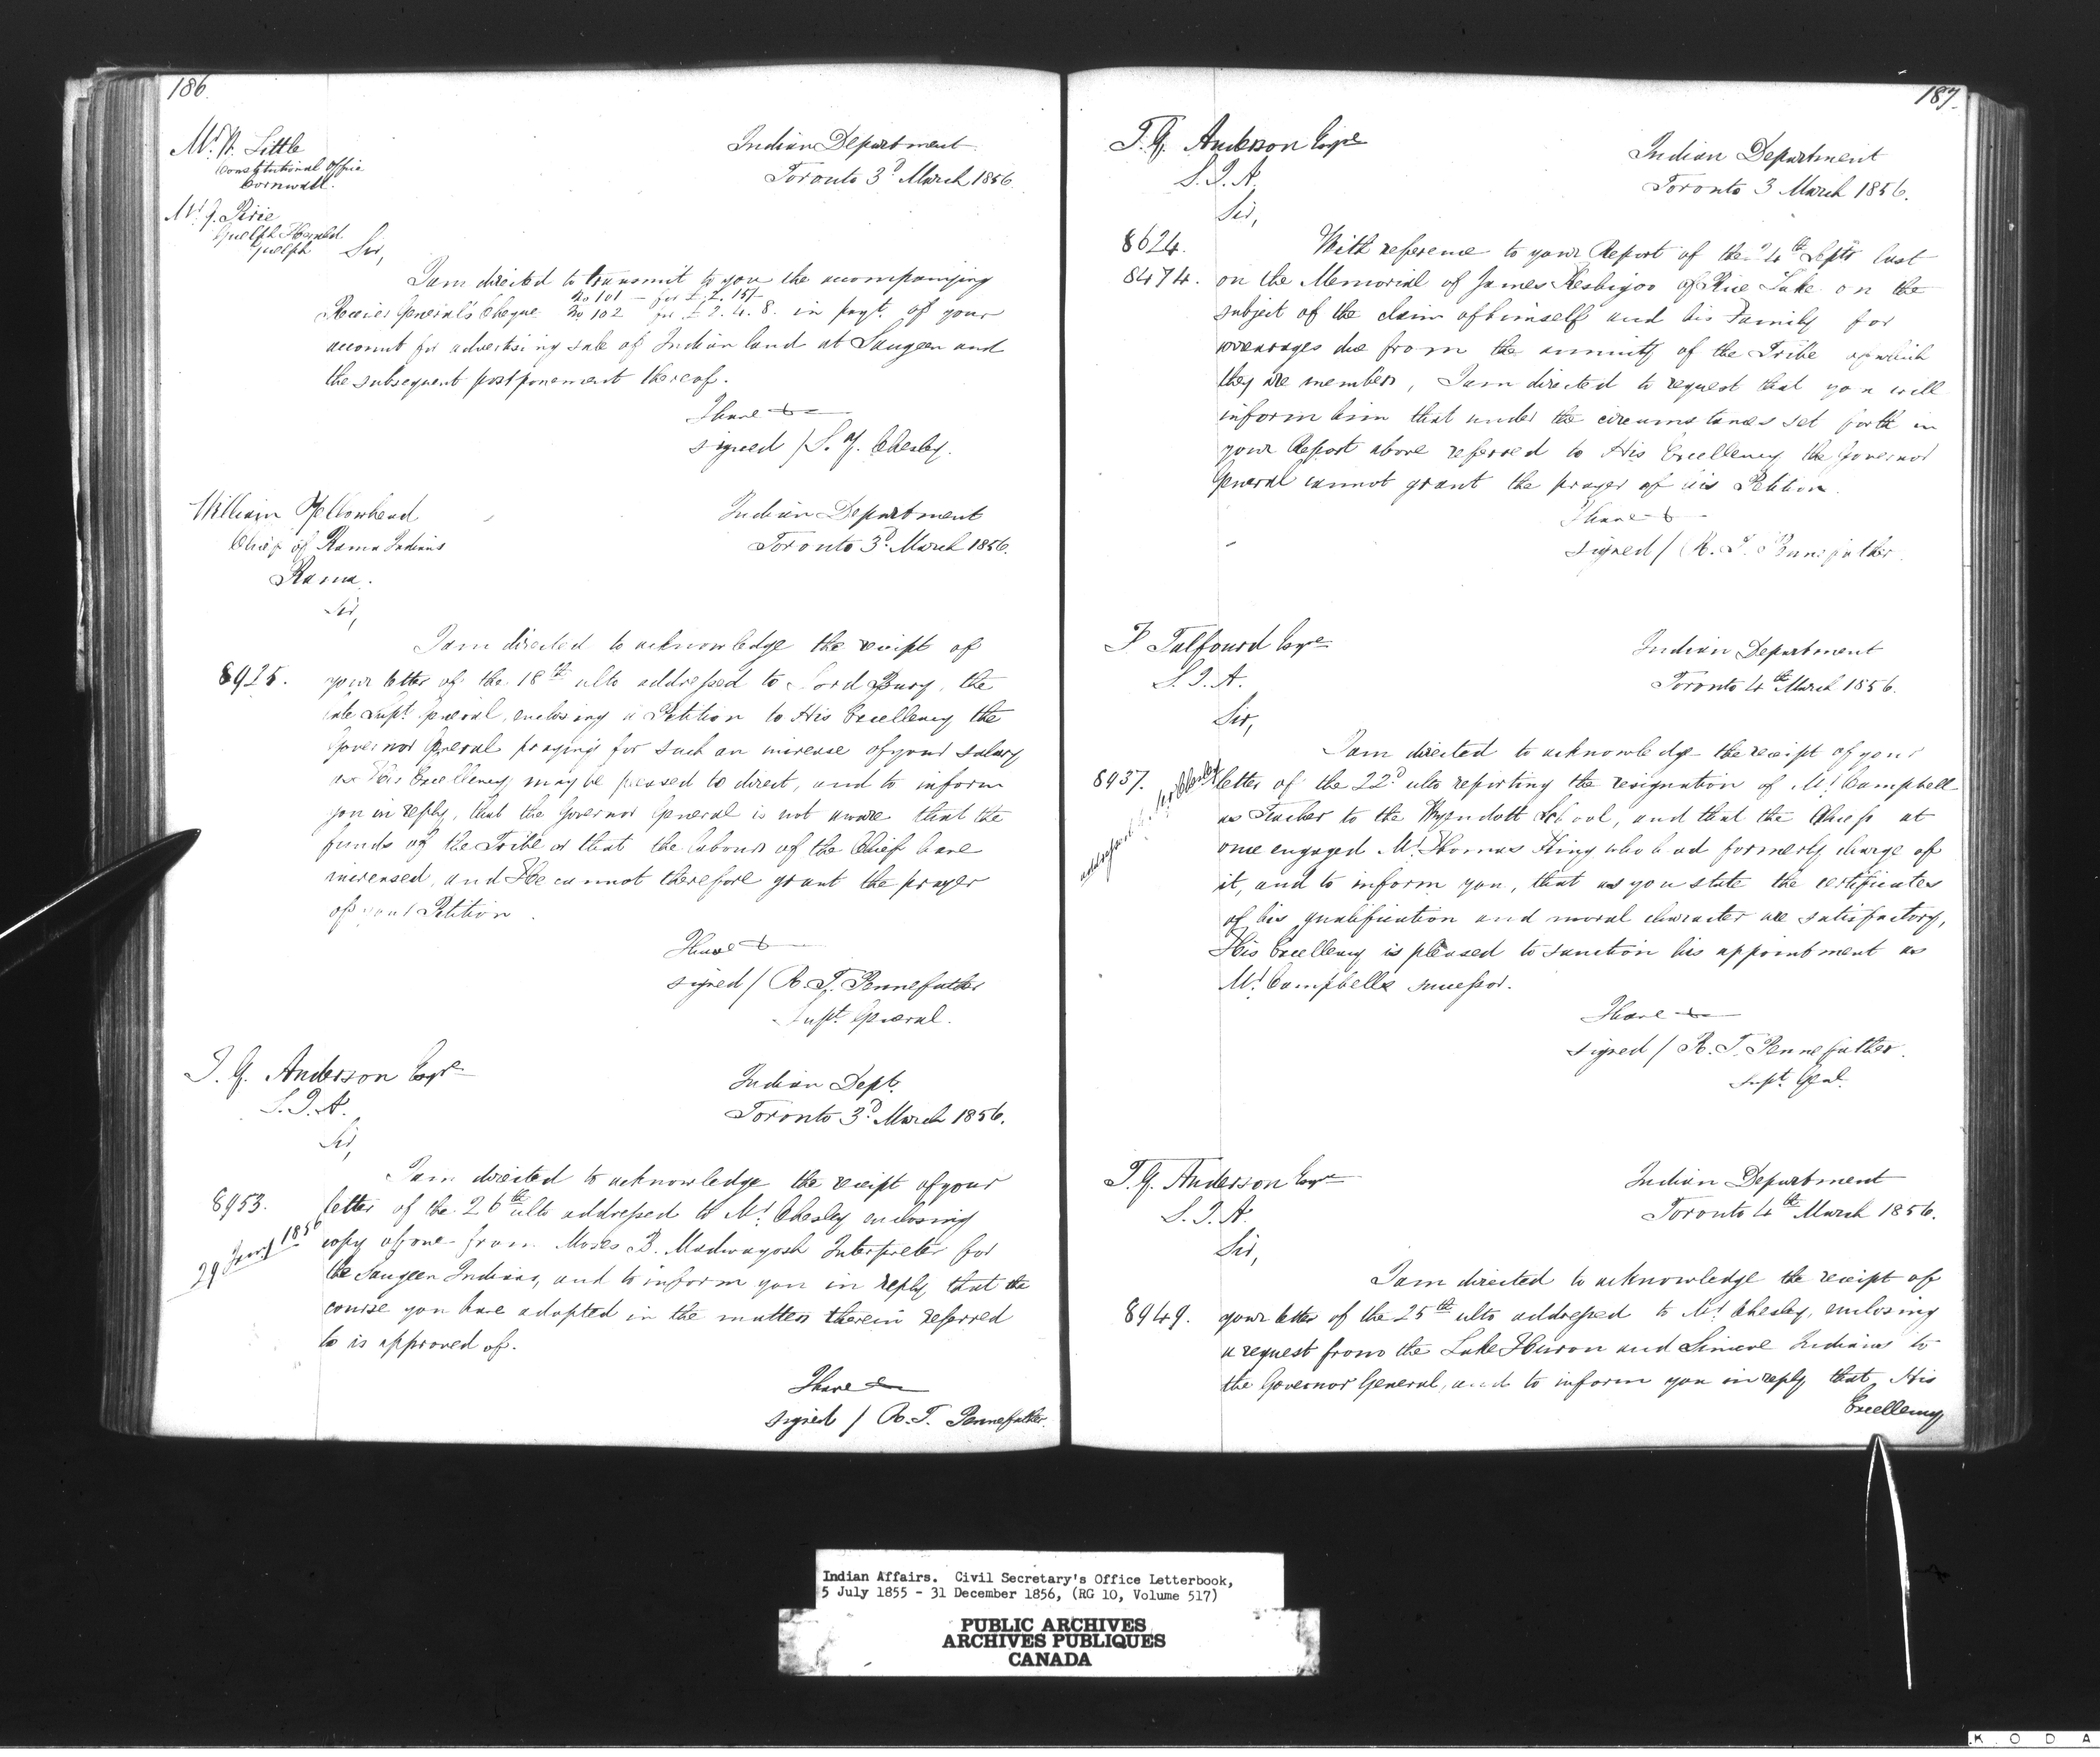 186.
Mr. W. Little
Constitutional Office
Cornwall.
Mr. J. Pirie
Guelph Herald
Guelph
Indian Department
Toronto 3d March 1856.
Sir,
I am directed to transmit to you the accompanying
No 101 – for £
Receiver General's Cheque No 102 for £ 2. 4. 8. in payt. of your
account for advertising sale of Indian land at Saugeen and
the subsequent postponement thereof.
I have &
signed / S. Y. Chesley.
William Yellowhead
Chief of Rama Indians
Rama.
Indian Department
Toronto 3d March 1856.
Sir,
I am directed to acknowledge the receipt of
8925. your letter of the 18th ulto addressed to Lord Bury, the
late Supt. General, enclosing a Petition to His Excellency the
Governor General praying for such an increase of your salary
as His Excellency may be pleased to direct, and to inform
you in reply, that the Governor General is not aware that the
funds of the Tribe or that the labours of the Chief have
increased, and He cannot therefore grant the prayer
of your Petition.
I have &
signed / R. T. Pennefather
Supt. General.
T. G. Anderson Esqre
S. I. A.
Indian Dept.
Toronto 3d March 1856.
Sir,
I am directed to acknowledge the receipt of your
8953. letter of the 26th ulto addressed to Mr. Chesley enclosing
29 Jany 1856 copy of one from Moses B. Madwayosh Interpreter for
the Saugeen Indians, and to inform you in reply that the
course you have adopted in the matters therein referred
to is approved of.
I have &
signed / R. T. Pennefather.
187.
T. G. Anderson Esqre
S. I. A.
Indian Department
Toronto 3 March 1856.
Sir,
8624. With reference to your Report of the 24th Septr last
8474. on the Memorial of James Keshigoo of Rice Lake on the
subject of the claim of himself and his Family for
arrearages due from the annuity of the Tribe of which
they are members, I am directed to request that you will
inform him that under the circumstances set forth in
your Report above referred to His Excellency the Governor
General cannot grant the prayer of his Petition.
I have &
signed / R. T. Pennefather.
F Talfourd Esqre
S. I. A.
Indian Department
Toronto 4th March 1856.
Sir,
I am directed to acknowledge the receipt of your
8937. letter of the 22d ulto reporting the resignation of Mr. Campbell
addressed to Mr Chesley
as Teacher to the Wyandott School, and that the Chiefs at
once engaged Mr. Thomas King who had formerly charge of
it, and to inform you, that as you state the certificates
of his qualification and moral character are satisfactory,
His Excellency is pleased to sanction his appointment as
Mr. Campbells successor.
I have &
signed / R. T. Pennefather.
Supt. Genl.
T. G. Anderson Esqre
S. I. A.
Indian Department
Toronto 4th March 1856.
Sir,
I am directed to acknowledge the receipt of
8949. your letter of the 25th ulto addressed to Mr Chesley, enclosing
a request from the Lake Huron and Simcoe Indians to
the Governor General, and to inform you in reply that His
Excellency
Indian Affairs. Civil Secretary's Office Letterbook,
5 July 1855 - 31 December 1856, (RG 10, Volume 517)
PUBLIC ARCHIVES
ARCHIVES PUBLIQUES
CANADA
K O D A